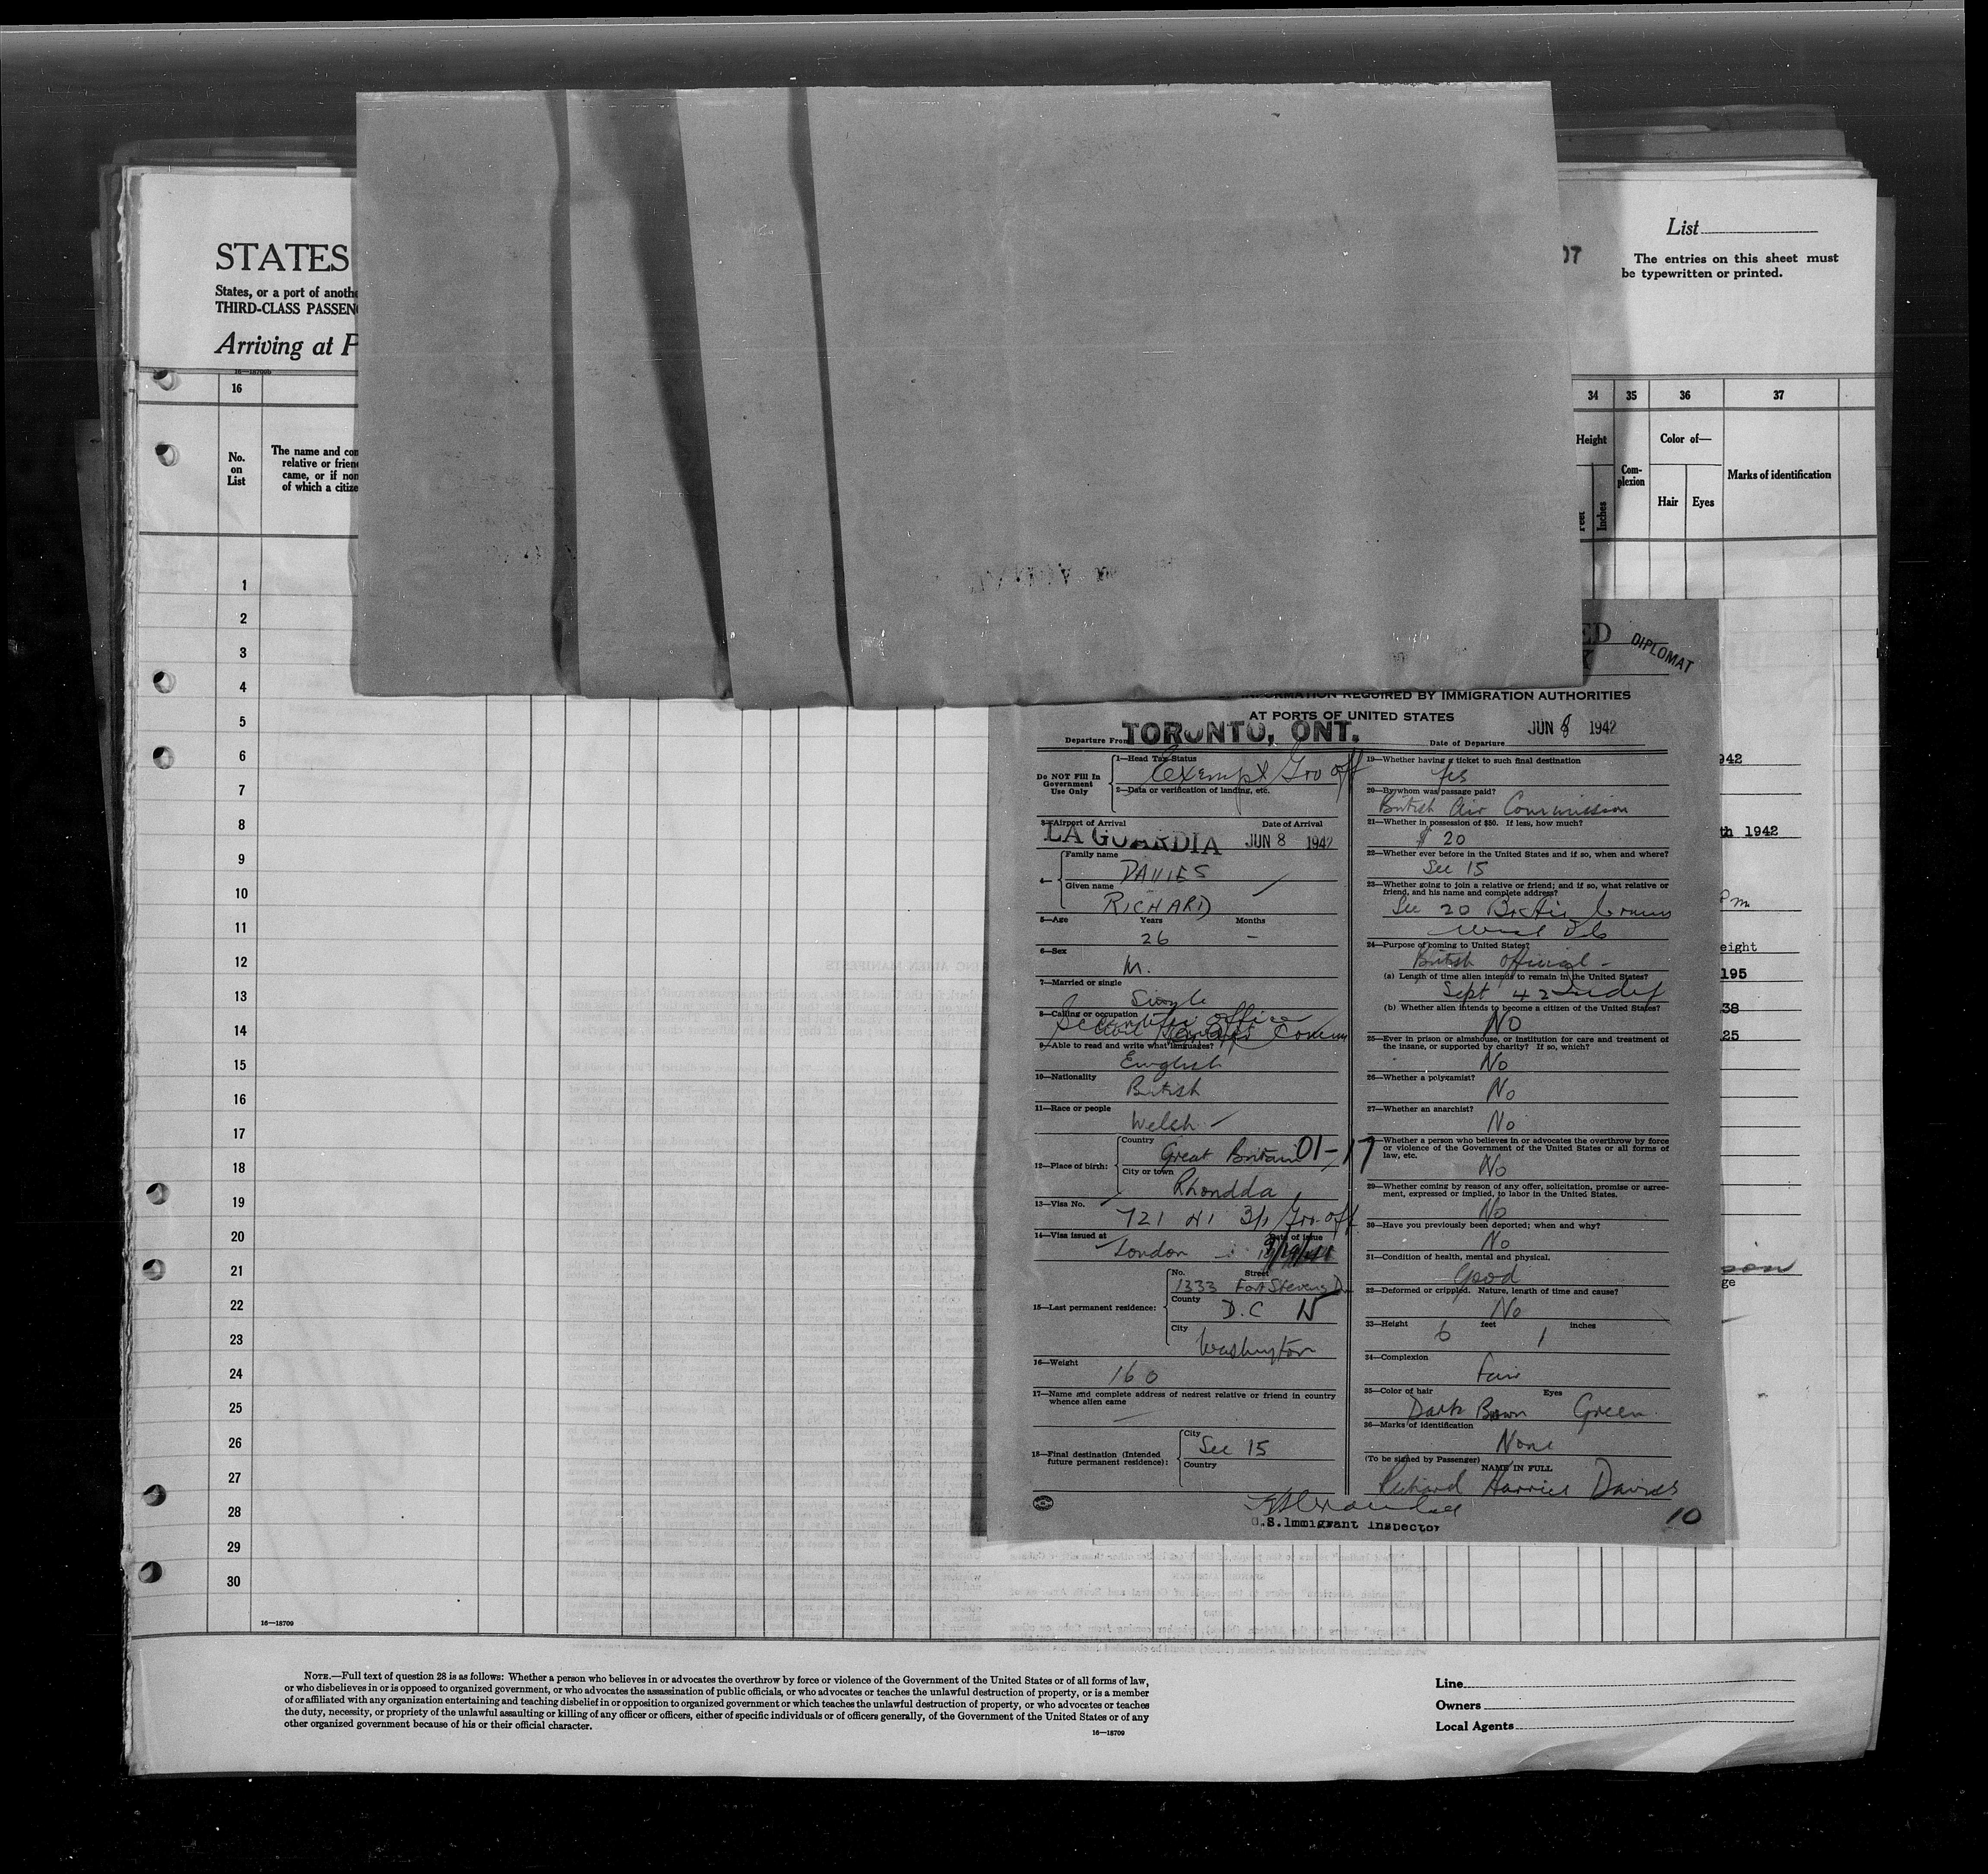 STATES
States, or a port of anothe
THIRD-CLASS PASSEN
Arriving at P
16—18709b
07
List
The entries on this sheet must
be typewritten or printed.
16
34 35 36 37
No.
on
List
The name and con
relative or frien
came, or if non
of which a citize
Height
Feet
Inches
Com-
plexion
Color of—
Hair Eyes
Marks of identification
1
2
3
4
5
6
7
8
9
10
11
12
13
14
15
16
17
18
19
20
21
22
23
24
25
26
27
28
29
30
16—18709
ED
DIPLOMAT
INFORMATION REQUIRED BY IMMIGRATION AUTHORITIES
AT PORTS OF UNITED STATES
Departure From TORONTO, ONT.
Date of Departure JUN 8 1942
Do NOT Fill In
Government
Use Only
1—Head Tax Status
Exempt Gov off
2—Data or verification of landing, etc.
3—Airport of Arrival Date of Arrival
LA GUARDIA JUN 8 1942
4—
Family name
DAVIES
Given name
RICHARD
5—Age Years Months
26 –
6—Sex
M.
7—Married or single
Single
8—Calling or occupation
Scientific Officer
9—Able to read and write what languages?
English
10—Nationality
British
11—Race or people
Welsh
12—Place of birth:
Country
Great Britain 01-17
City or town
Rhondda
13—Visa No.
721 3/1 Gov. off
14—Visa issued at Date of issue
London
15—Last permanent residence:
No. Street
1333 Fort Stevens Dr
County
D.C
City
Washington
16—Weight
160
17—Name and complete address of nearest relative or friend in country
whence alien came
18—Final destination (Intended
future permanent residence):
City
See 15
Country
U.S. Immigrant Inspector
19—Whether having a ticket to such final destination
Yes
20—By whom was passage paid?
British Air Commission
21—Whether in possession of $50. If less, how much?
$ 20
22—Whether ever before in the United States and if so, when and where?
See 15
23—Whether going to join a relative or friend; and if so, what relative or
friend, and his name and complete address?
See 20
24—Purpose of coming to United States?
British Official -
(a) Length of time alien intends to remain in the United States?
Sept 42 Indef
(b) Whether alien intends to become a citizen of the United States?
NO
25—Ever in prison or almshouse, or institution for care and treatment of
the insane, or supported by charity? If so, which?
No
26—Whether a polygamist?
No
27—Whether an anarchist?
No
Whether a person who believes in or advocates the overthrow by force
or violence of the Government of the United States or all forms of
law, etc.
No
29—Whether coming by reason of any offer, solicitation, promise or agree-
ment, expressed or implied, to labor in the United States.
No
30—Have you previously been deported; when and why?
No
31—Condition of health, mental and physical.
Good
32—Deformed or crippled. Nature, length of time and cause?
No
33—Height feet inches
6 1
34—Complexion
Fair
35—Color of hair Eyes
Dark Brown Green
36—Marks of identification
None
(To be signed by Passenger)
NAME IN FULL
Richard Harries Davies
10
942
th 1942
eight
195
38
25
son
ge
NOTE.—Full text of question 28 is as follows: Whether a person who believes in or advocates the overthrow by force or violence of the Government of the United States or of all forms of law,
or who disbelieves in or is opposed to organized government, or who advocates the assassination of public officials, or who advocates or teaches the unlawful destruction of property, or is a member
of or affiliated with any organization entertaining and teaching disbelief in or opposition to organized government or which teaches the unlawful destruction of property, or who advocates or teaches
the duty, necessity, or propriety of the unlawful assaulting or killing of any officer or officers, either of specific individuals or of officers generally, of the Government of the United States or of any
other organized government because of his or their official character.
16—18709
Line
Owners
Local Agents